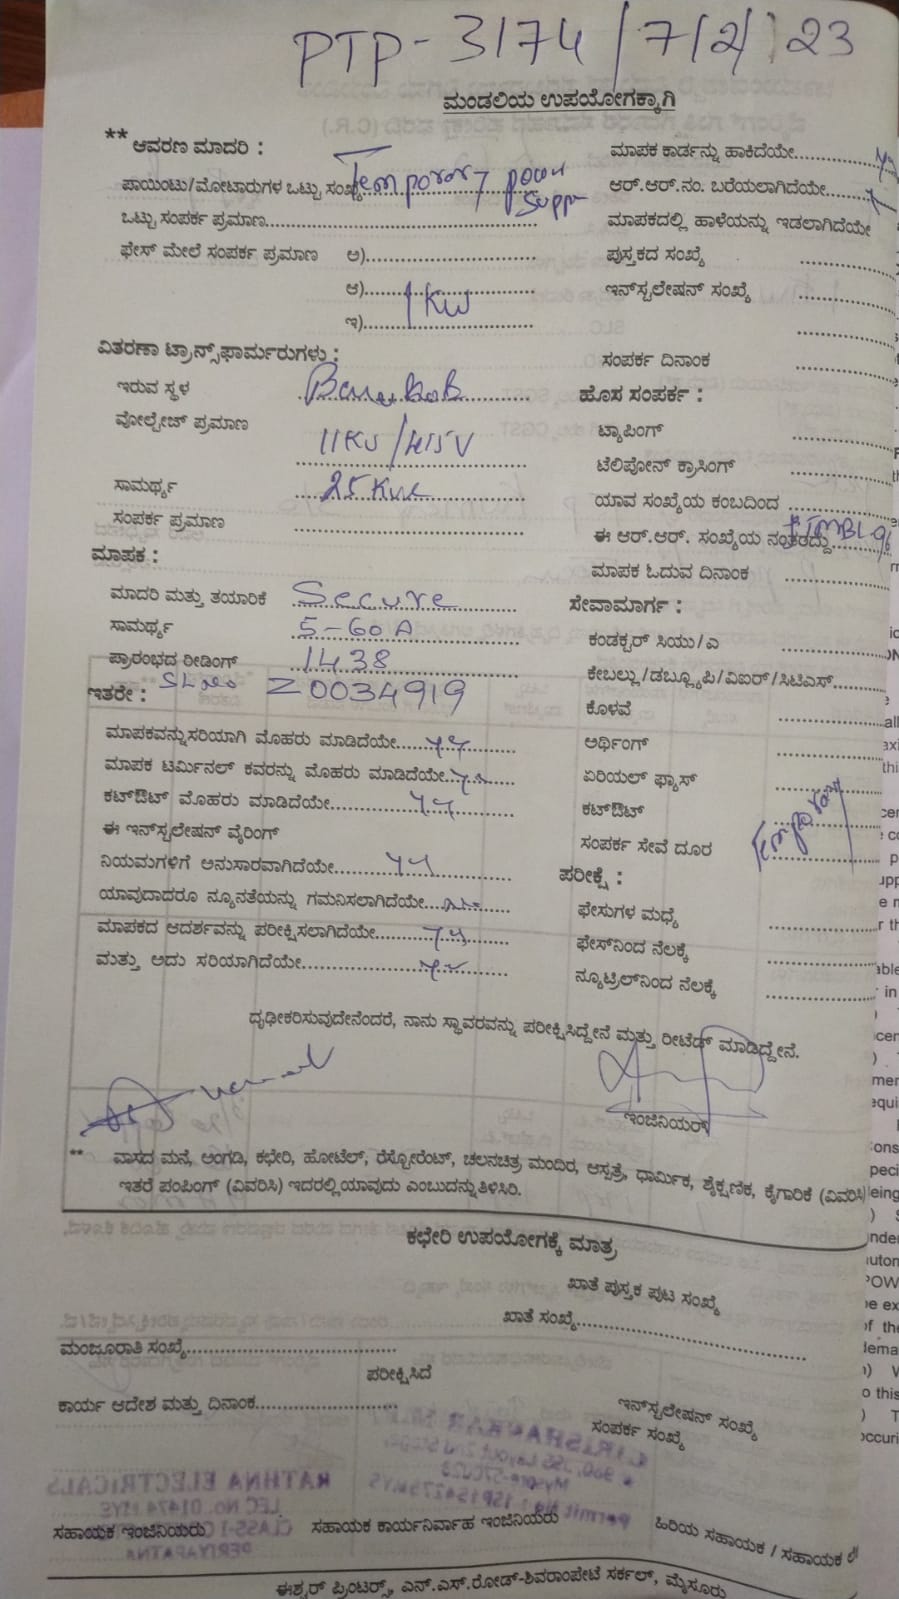 PTP-3174/7/2/23
ಮಂಡಲಿಯ ಉಪಯೋಗಕ್ಕಾಗಿ
** ಆವರಣ ಮಾದರಿ :
ಪಾಯಿಂಟು/ಮೋಟಾರುಗಳ ಒಟ್ಟು ಸಂಖ್ಯೆ Temporary power
ಒಟ್ಟು ಸಂಪರ್ಕ ಪ್ರಮಾಣ
ಫೇಸ್ ಮೇಲೆ ಸಂಪರ್ಕ ಪ್ರಮಾಣ ಅ)
ಆ) 1 KW
ಇ)
ವಿತರಣಾ ಟ್ರಾನ್ಸ್‌ಫಾರ್ಮರುಗಳು :
ಇರುವ ಸ್ಥಳ
ವೋಲ್ಟೇಜ್ ಪ್ರಮಾಣ 11KV/415V
ಸಾಮರ್ಥ್ಯ
ಸಂಪರ್ಕ ಪ್ರಮಾಣ
ಮಾಪಕ :
ಮಾದರಿ ಮತ್ತು ತಯಾರಿಕೆ Secure
ಸಾಮರ್ಥ್ಯ 5-60 A
ಪ್ರಾರಂಭದ ರೀಡಿಂಗ್ 1438
ಇತರೇ : SL no Z0034919
ಮಾಪಕವನ್ನು ಸರಿಯಾಗಿ ಮೊಹರು ಮಾಡಿದೆಯೇ
ಮಾಪಕ ಟರ್ಮಿನಲ್ ಕವರನ್ನು ಮೊಹರು ಮಾಡಿದೆಯೇ
ಕಟ್‌ಔಟ್ ಮೊಹರು ಮಾಡಿದೆಯೇ
ಈ ಇನ್‌ಸ್ಟಲೇಷನ್ ವೈರಿಂಗ್
ನಿಯಮಗಳಿಗೆ ಅನುಸಾರವಾಗಿದೆಯೇ
ಯಾವುದಾದರೂ ನ್ಯೂನತೆಯನ್ನು ಗಮನಿಸಲಾಗಿದೆಯೇ
ಮಾಪಕದ ಆದರ್ಶವನ್ನು ಪರೀಕ್ಷಿಸಲಾಗಿದೆಯೇ
ಮತ್ತು ಅದು ಸರಿಯಾಗಿದೆಯೇ
ಮಾಪಕ ಕಾರ್ಡನ್ನು ಹಾಕಿದೆಯೇ
ಆರ್.ಆರ್.ನಂ. ಬರೆಯಲಾಗಿದೆಯೇ
ಮಾಪಕದಲ್ಲಿ ಹಾಳೆಯನ್ನು ಇಡಲಾಗಿದೆಯೇ
ಪುಸ್ತಕದ ಸಂಖ್ಯೆ
ಇನ್‌ಸ್ಟಲೇಷನ್ ಸಂಖ್ಯೆ
ಸಂಪರ್ಕ ದಿನಾಂಕ
ಹೊಸ ಸಂಪರ್ಕ :
ಟ್ಯಾಪಿಂಗ್
ಟೆಲಿಪೋನ್ ಕ್ರಾಸಿಂಗ್
ಯಾವ ಸಂಖ್ಯೆಯ ಕಂಬದಿಂದ
ಈ ಆರ್.ಆರ್. ಸಂಖ್ಯೆಯ ನಂತರದ್ದು
ಮಾಪಕ ಓದುವ ದಿನಾಂಕ
ಸೇವಾಮಾರ್ಗ :
ಕಂಡಕ್ಟರ್ ಸಿಯು/ಎ
ಕೇಬಲ್ಲು/ಡಬ್ಲ್ಯೂಪಿ/ವಿಐರ್/ಸಿಟಿಎಸ್
ಕೊಳವೆ
ಅರ್ಥಿಂಗ್
ಏರಿಯಲ್ ಫ್ಯಾಸ್
ಕಟ್‌ಔಟ್
ಸಂಪರ್ಕ ಸೇವೆ ದೂರ Temporary
ಪರೀಕ್ಷೆ :
ಫೇಸುಗಳ ಮಧ್ಯೆ
ಫೇಸ್‌ನಿಂದ ನೆಲಕ್ಕೆ
ನ್ಯೂಟ್ರಲ್‌ನಿಂದ ನೆಲಕ್ಕೆ
ದೃಢೀಕರಿಸುವುದೇನೆಂದರೆ, ನಾನು ಸ್ಥಾವರವನ್ನು ಪರೀಕ್ಷಿಸಿದ್ದೇನೆ ಮತ್ತು ರೀಟೆಡ್ ಮಾಡಿದ್ದೇನೆ.
ಇಂಜಿನಿಯರ್
** ವಾಸದ ಮನೆ, ಅಂಗಡಿ, ಕಛೇರಿ, ಹೋಟೆಲ್, ರೆಸ್ಟೋರೆಂಟ್, ಚಲನಚಿತ್ರ ಮಂದಿರ, ಆಸ್ಪತ್ರೆ, ಧಾರ್ಮಿಕ, ಶೈಕ್ಷಣಿಕ, ಕೈಗಾರಿಕೆ (ವಿವರಿಸಿ)
ಇತರೆ ಪಂಪಿಂಗ್ (ವಿವರಿಸಿ) ಇದರಲ್ಲಿ ಯಾವುದು ಎಂಬುದನ್ನು ತಿಳಿಸಿರಿ.
ಕಛೇರಿ ಉಪಯೋಗಕ್ಕೆ ಮಾತ್ರ
ಖಾತೆ ಪುಸ್ತಕ ಪುಟ ಸಂಖ್ಯೆ
ಖಾತೆ ಸಂಖ್ಯೆ
ಮಂಜೂರಾತಿ ಸಂಖ್ಯೆ
ಪರೀಕ್ಷಿಸಿದೆ
ಕಾರ್ಯ ಆದೇಶ ಮತ್ತು ದಿನಾಂಕ
ಇನ್‌ಸ್ಟಲೇಷನ್ ಸಂಖ್ಯೆ
ಸಂಪರ್ಕ ಸಂಖ್ಯೆ
ಸಹಾಯಕ ಇಂಜಿನಿಯರು ಸಹಾಯಕ ಕಾರ್ಯನಿರ್ವಾಹ ಇಂಜಿನಿಯರು ಹಿರಿಯ ಸಹಾಯಕ / ಸಹಾಯಕ
ಈಶ್ವರ್ ಪ್ರಿಂಟರ್ಸ್, ಎನ್.ಎಸ್.ರೋಡ್-ಶಿವರಾಂಪೇಟೆ ಸರ್ಕಲ್, ಮೈಸೂರು